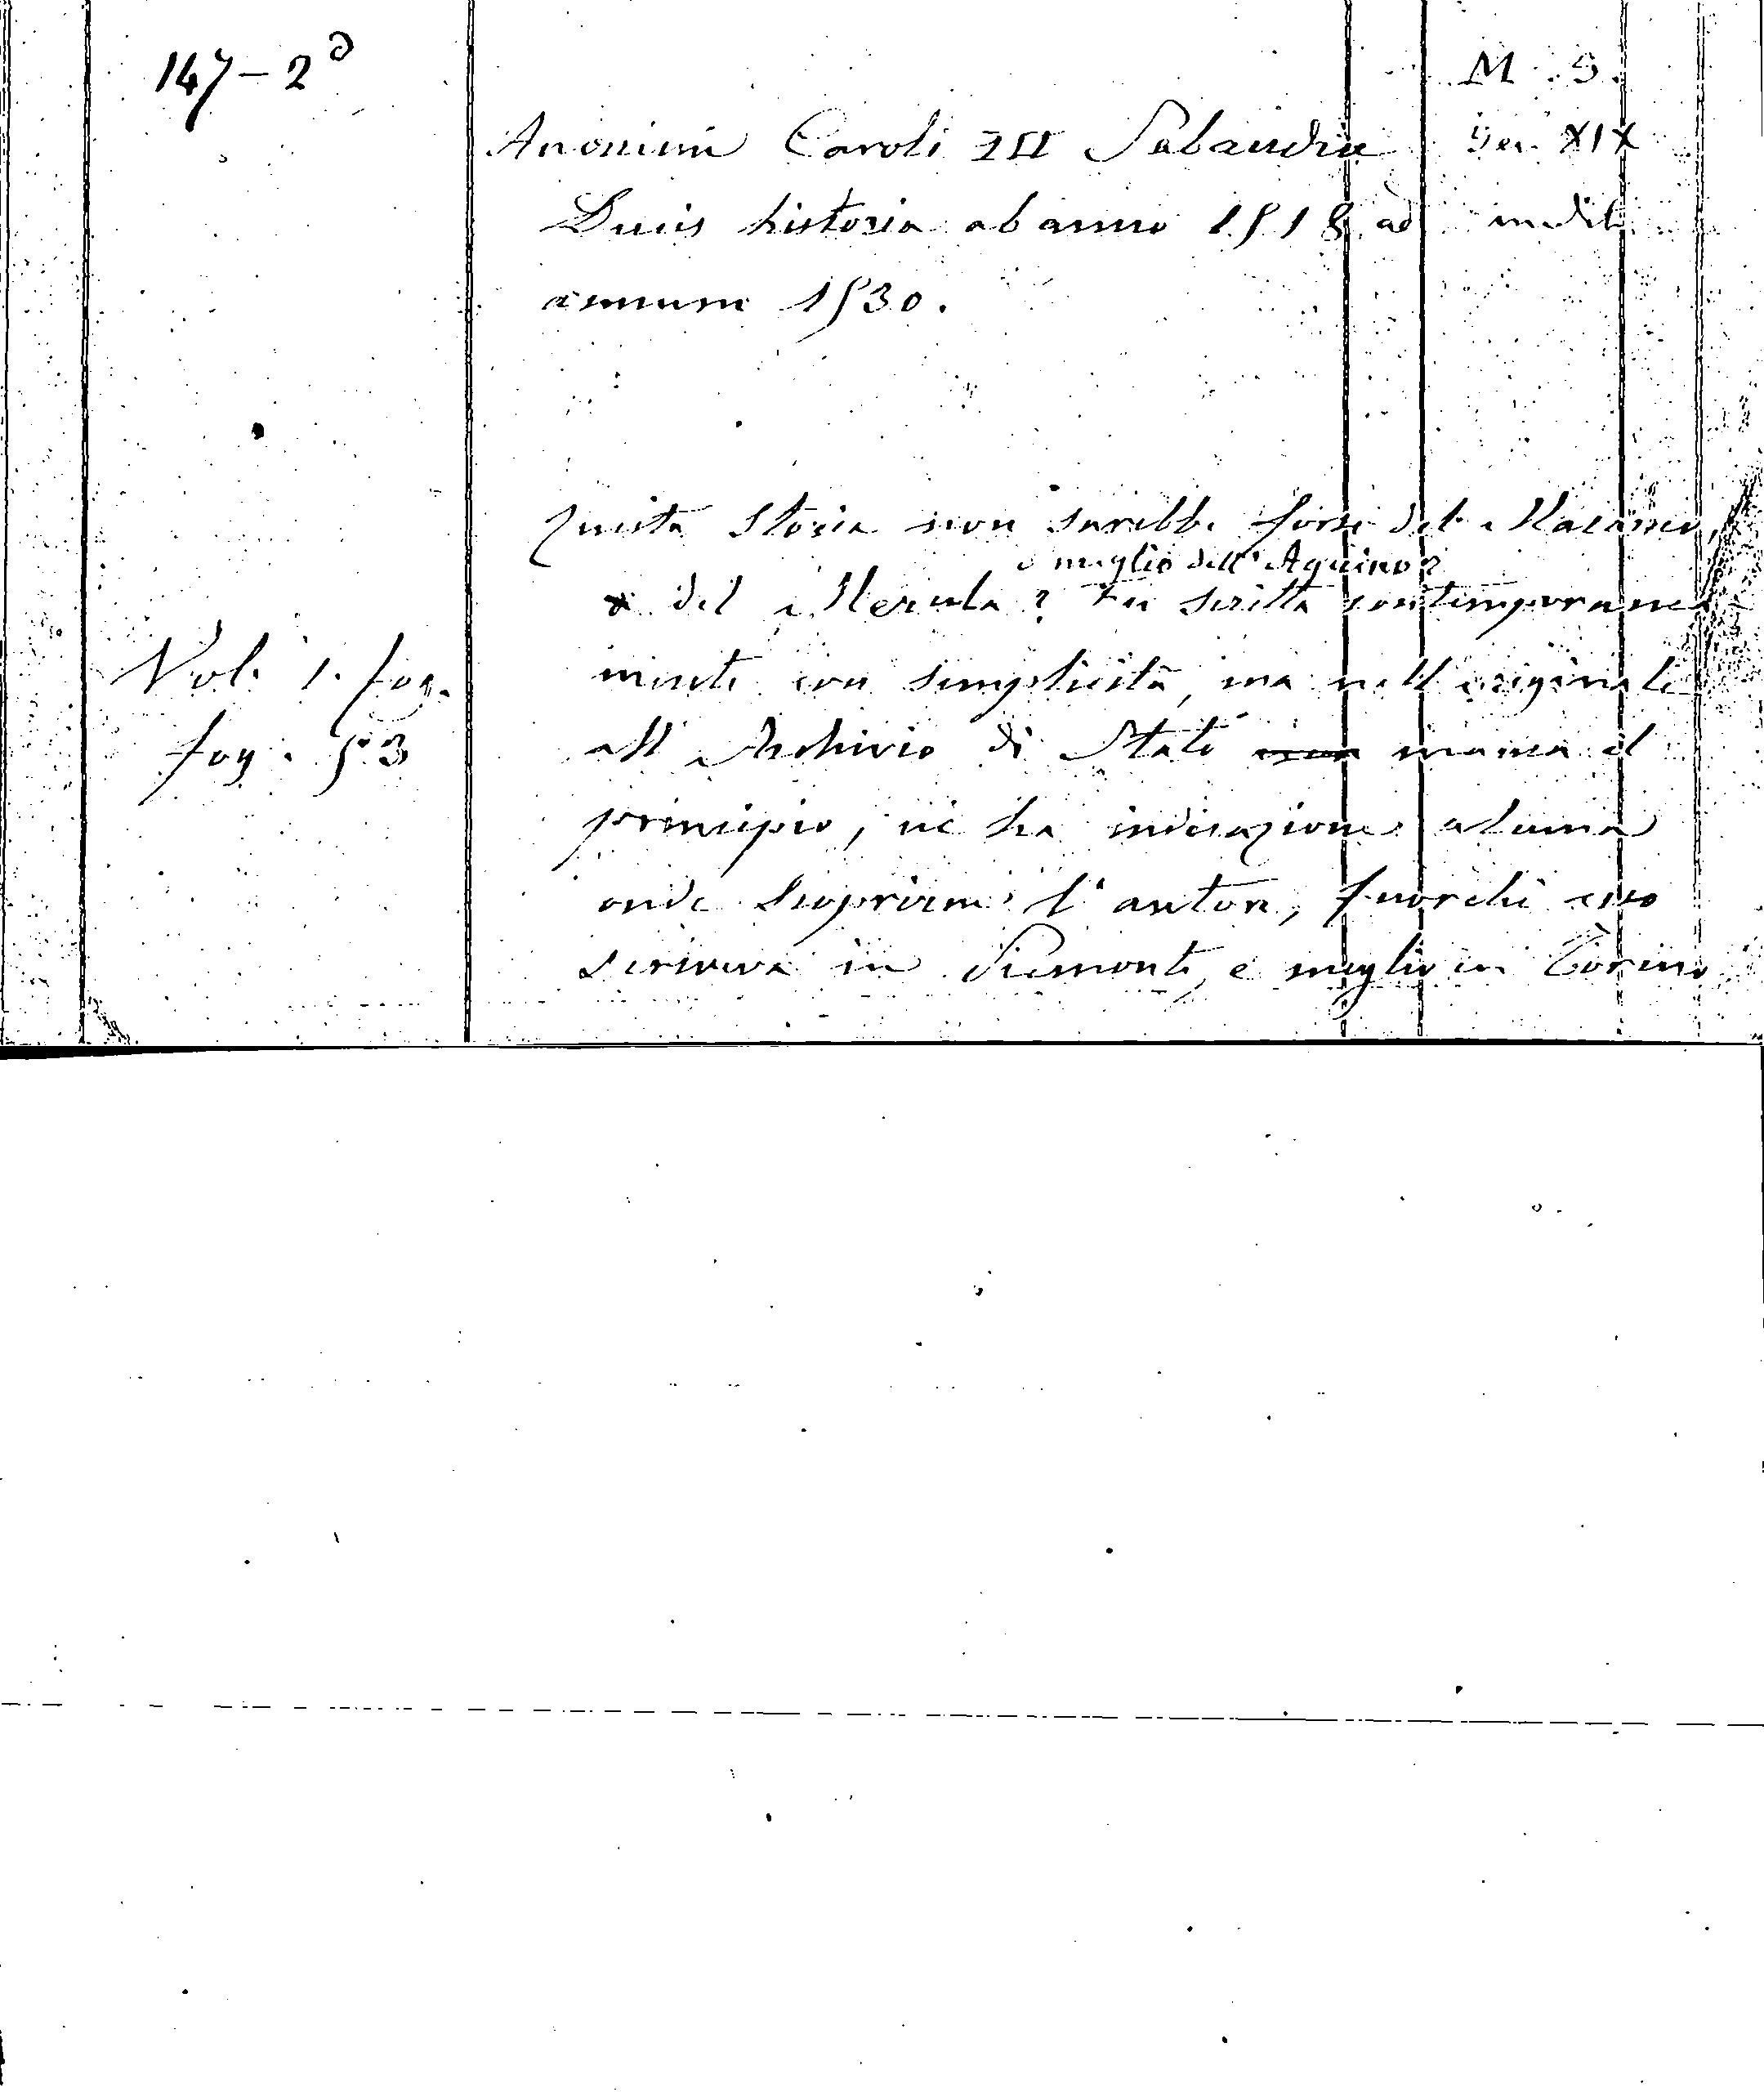 147 – 2°
M. S.
Anonimi Caroli III Sabaudiæ
Sec. XIX
Ducis historia ab anno 1518 ad
inedit
annum 1530.
Questa storia non sarebbe forse del
o meglio dell'Aquino?
o del Merula? Fu scritta contemporanea
Vol. 1. fog.
mente con semplicità, ma nell'originale
fog. 53
all'Archivio di Stato manca il
principio, nè ha indicazione alcuna
onde scoprirne l'autore, fuorchè esso
scriveva in Piemonte, e meglio in Torino